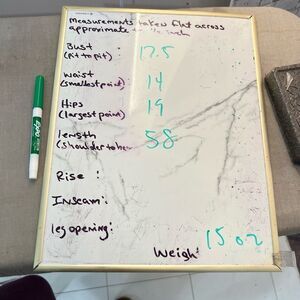 measurements taken flat across
approximate to the inch
Bust : 17.5
(pit to pit)
waist : 14
(smallest point)
Hips : 19
(largest point)
length : 58
(shoulder to hem)
Rise :
Inseam :
leg opening :
Weigh 15 oz
EXPO